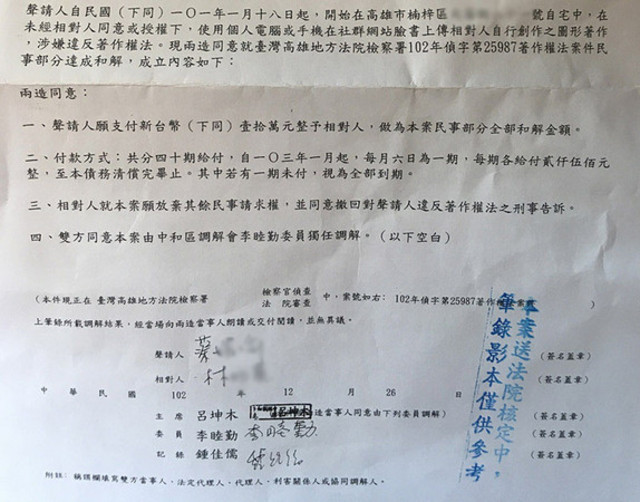 聲請人自民國（下同）一○一年一月十八日起，開始在高雄市楠梓區 號自宅中，在
未經相對人同意或授權下，使用個人電腦或手機在社群網站臉書上傳相對人自行創作之圖形著作
，涉嫌違反著作權法。現兩造同意就臺灣高雄地方法院檢察署102年偵字第25987著作權法案件民
事部分達成和解，成立內容如下：
兩造同意：
一、聲請人願支付新台幣（下同）壹拾萬元整予相對人，做為本案民事部分全部和解金額。
二、付款方式：共分四十期給付，自一○三年一月起，每月六日為一期，每期各給付貳仟伍佰元
整，至本債務清償完畢止。其中若有一期未付，視為全部到期。
三、相對人就本案願放棄其餘民事請求權，並同意撤回對聲請人違反著作權法之刑事告訴。
四、雙方同意本案由中和區調解會李睦勤委員獨任調解。（以下空白）
（本件現正在 臺灣高雄地方法院檢察署 檢察官偵查 中，案號如右： 102年偵字第25987著作權法案號 ）
法 院審查
上筆錄所載調解結果，經當場向兩造當事人朗讀或交付閱讀，並無異議。
聲請人 蔡 （簽名蓋章）
相對人 林 （簽名蓋章）
中 華 民 國 102 年 12 月 26 日
主 席 呂坤木 呂坤木 造當事人同意由下列委員調解） （簽名蓋章）
委 員 李睦勤 李睦勤 （簽名蓋章）
記 錄 鍾佳儒 （簽名蓋章）
附註：稱謂欄填寫雙方當事人、法定代理人、代理人、利害關係人或協同調解人。
本案送法院核定中，
筆錄影本僅供參考